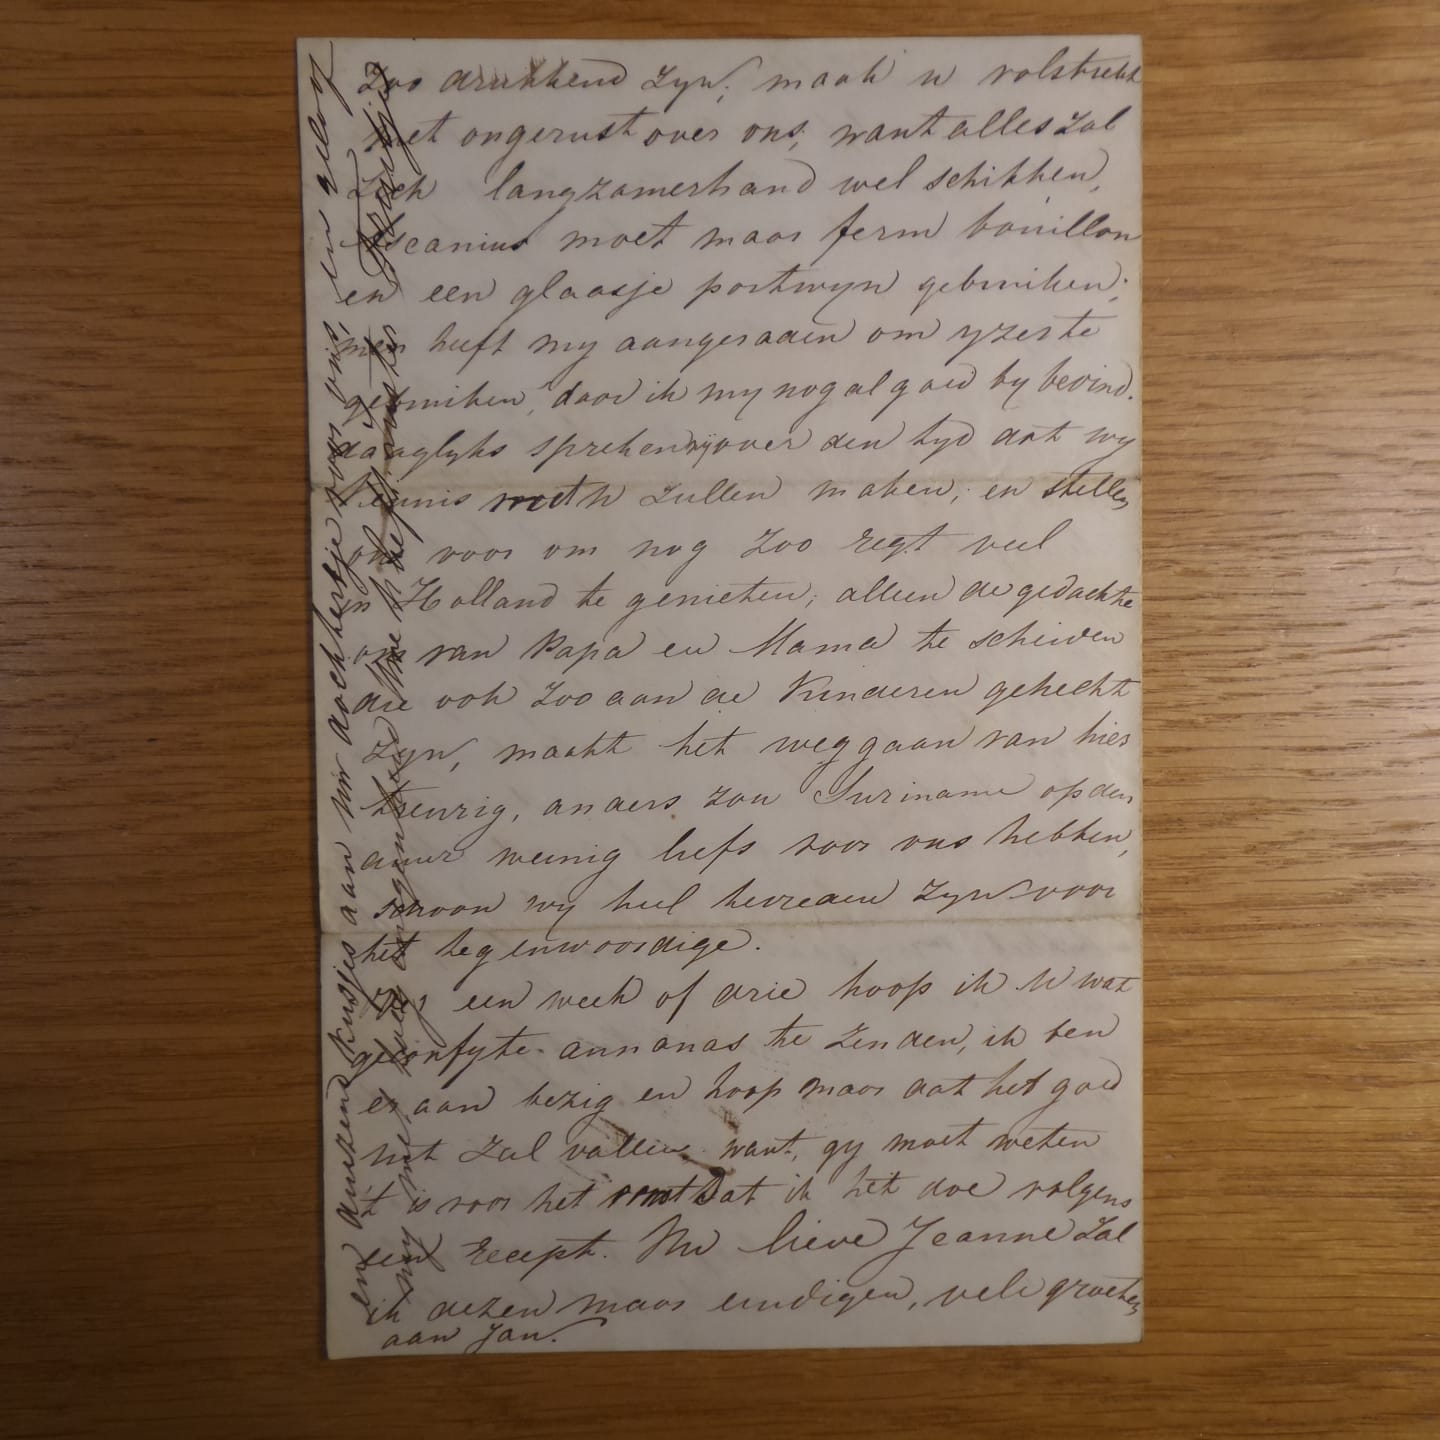 Zoo drukkend zyn; maak u volstrekt
niet ongerust over ons; want alles zal
zich langzamerhand wel schikken,
Ascanius moet maar ferm bouillon
en een glaasje portwyn gebruiken;
men heeft my aangeraden om yzer te
gebruiken, daar ik my nog al goed by bevind.
daaglyks spreken wy over den tyd dat wy
kennis met U zullen maken; en stellen
ons voor om nog zoo regt veel
in Holland te genieten; alleen de gedachte
om van Papa en Mama te scheiden
die ook zoo aan de Kinderen gehecht
zyn, maakt het weggaan van hier
treurig, anders zou Suriname op den
duur weinig liefs voor ons hebben,
schoon wy heel tevreden zyn voor
het tegenwoordige.
een week of drie hoop ik U wat
geconfyte annanas te zenden, ik ben
er aan bezig en hoop maar dat het goed
uit zal vallen want, gy moet weten
't is voor het eerst dat ik het doe volgens
een recept. Nu lieve Jeanne zal
ik dezen maar eindigen, vele groeten
aan Jan.
en duizend kusjes aan uw dochtertje voor ons, en geloof
my met toegenegenheid Uwe liefh. zuster